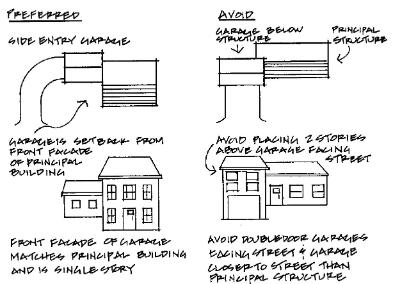 PREFERRED
SIDE ENTRY GARAGE
GARAGE IS SETBACK FROM
FRONT FACADE
OF PRINCIPAL
BUILDING
FRONT FACADE OF GARAGE
MATCHES PRINCIPAL BUILDING
AND IS SINGLE STORY
AVOID
GARAGE BELOW
STRUCTURE
PRINCIPAL
STRUCTURE
AVOID PLACING 2 STORIES
ABOVE GARAGE FACING
STREET
AVOID DOUBLE DOOR GARAGES
FACING STREET & GARAGE
CLOSER TO STREET THAN
PRINCIPAL STRUCTURE